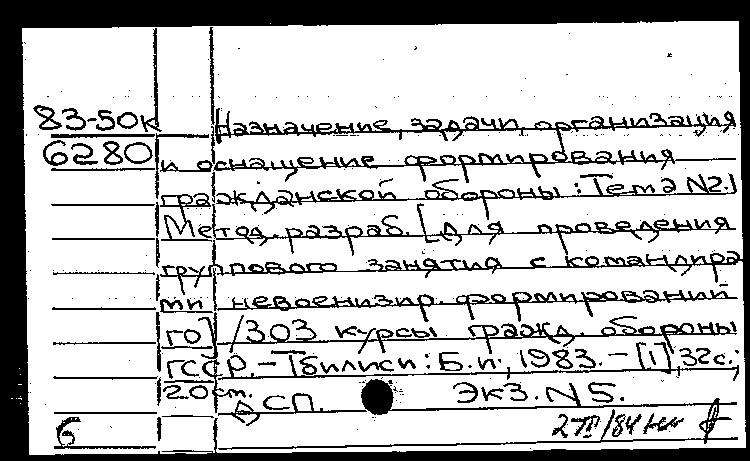 83-50к Назначение, задачи, организация
6280 и оснащение формирования
гражданской обороны: Тема N2.)
Метод. разраб. [для проведения
группового занятия с командира
ми невоенизир. формирований
го] /303 курсы гражд. обороны
ГССР. - Тбилиси: Б.и., 1983. - [1], 32с.;
20см.
ДСП. Экз. N5.
6